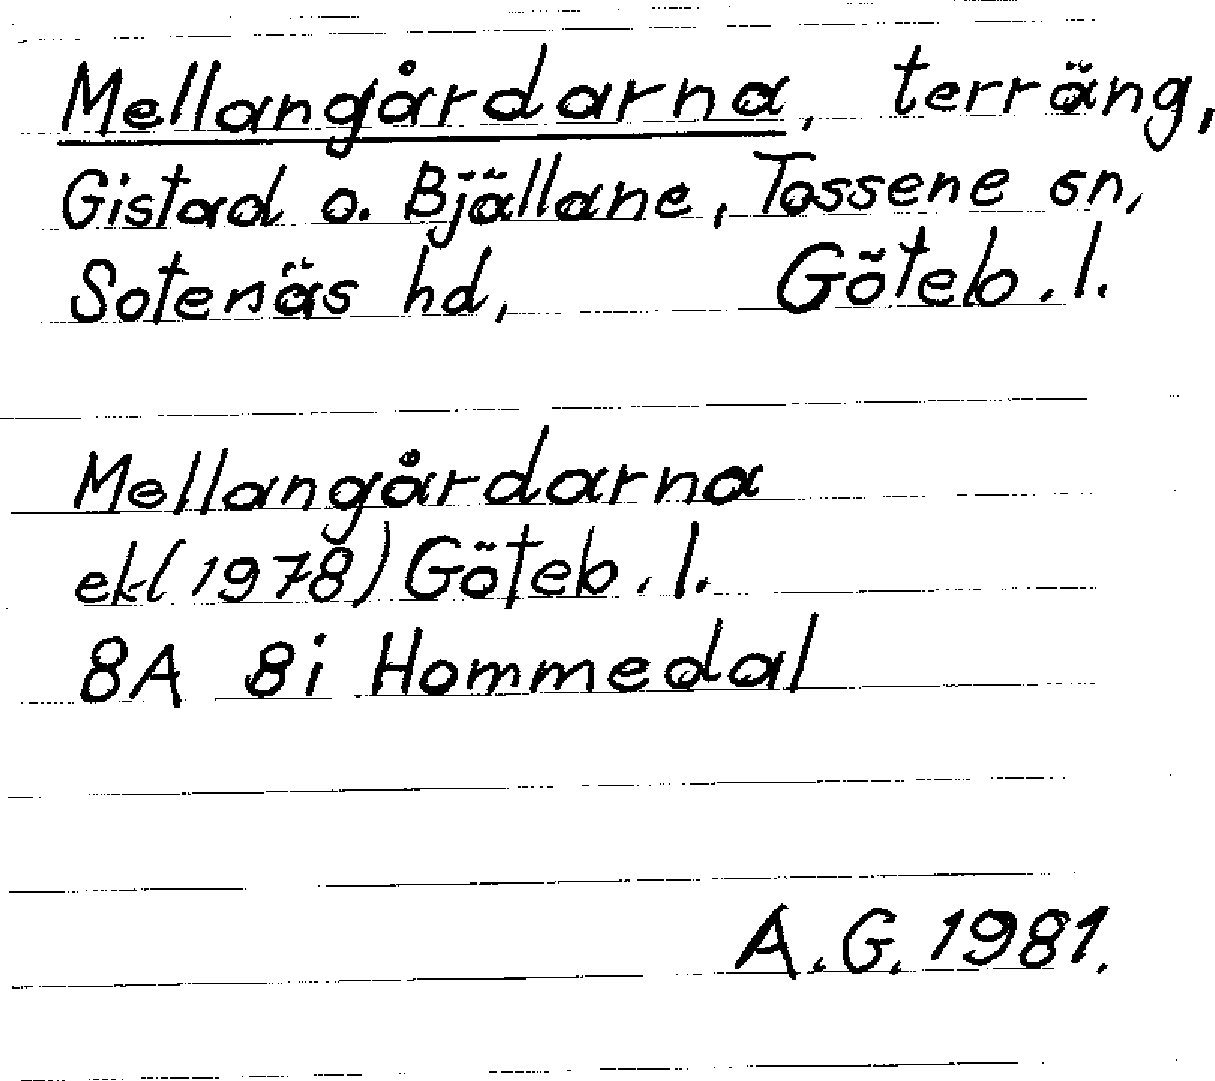 Mellangårdarna, terräng,
Gistad o. Bjällane, Tossene sn,
Sotenäs hd, Göteb. l.
Mellangårdarna
ek (1978) Göteb. l.
8A 8i Hommedal
A.G. 1981.